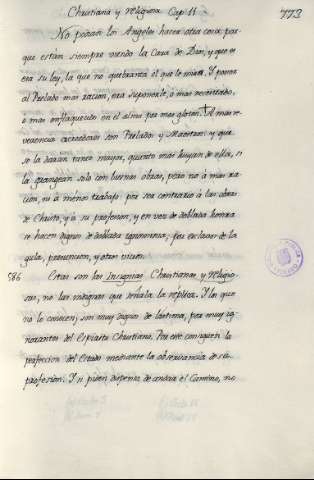 Christiana y Religiosa Cap. 11
773
No podian los Angeles hacer otra cosa, por
que están siempre viendo la Cara de Dios, y que es
era su ley, la que no quebranta el que le mira. Y poner
al Prelado mas racion, era suponerle, ó mas
ó mas enflaquecido en el alma por mas gloton. A mas re
verencia acreedores son Prelados y Maestros y que
se la darán tanto mayor, quanto mas huyan de ella, si
la grangean solo con buenas obras, pero no á mas ra
cion, ni á menos trabajo por ser contrario á las obras
de Christo, y á su profesion, y en vez de doblada honra
se hacen dignos de doblada ignominia, por esclavos de la
gula, presuncion, y otros vicios.
586 Estas son las Insignias Christianas y Religio
sas, no las indignas que señala la réplica. Y los que
no lo conocen, son muy dignos de lástima, por muy ig
norantes del Espiritu Christiano. Por este consiguen la
perfeccion del Estado mediante la observancia de su
profesion. Y si piden dispensa de andar el Camino, no